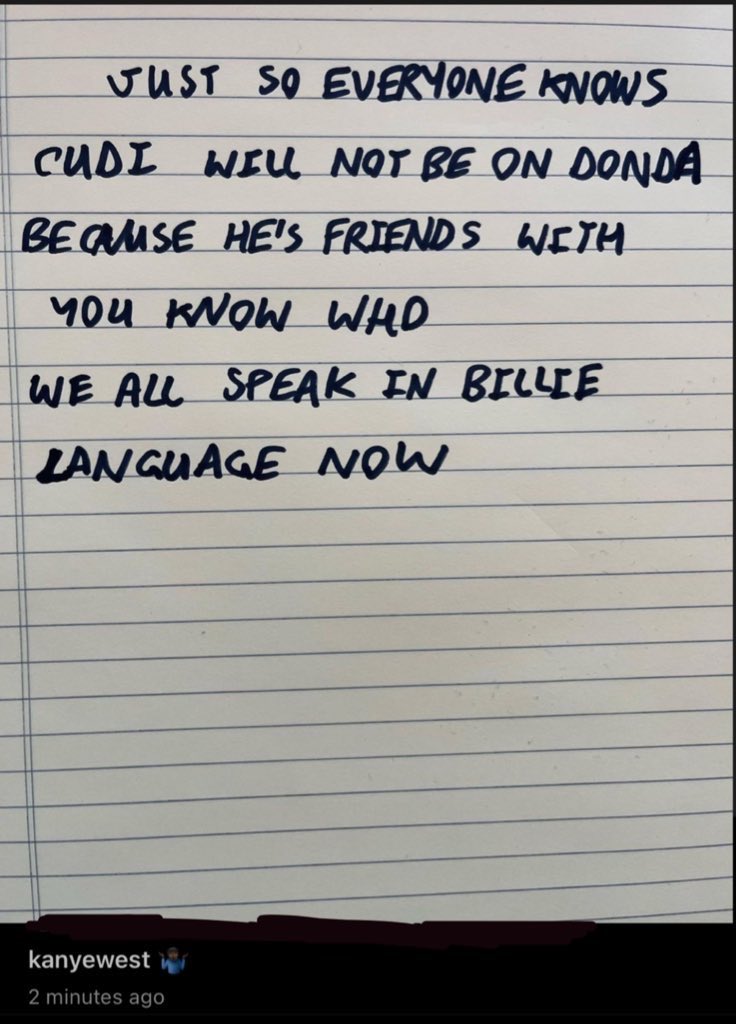 JUST SO EVERYONE KNOWS
CUDI WILL NOT BE ON DONDA
BECAUSE HE'S FRIENDS WITH
YOU KNOW WHO
WE ALL SPEAK IN BILLIE
LANGUAGE NOW
kanyewest 🤷🏾‍♂️
2 minutes ago